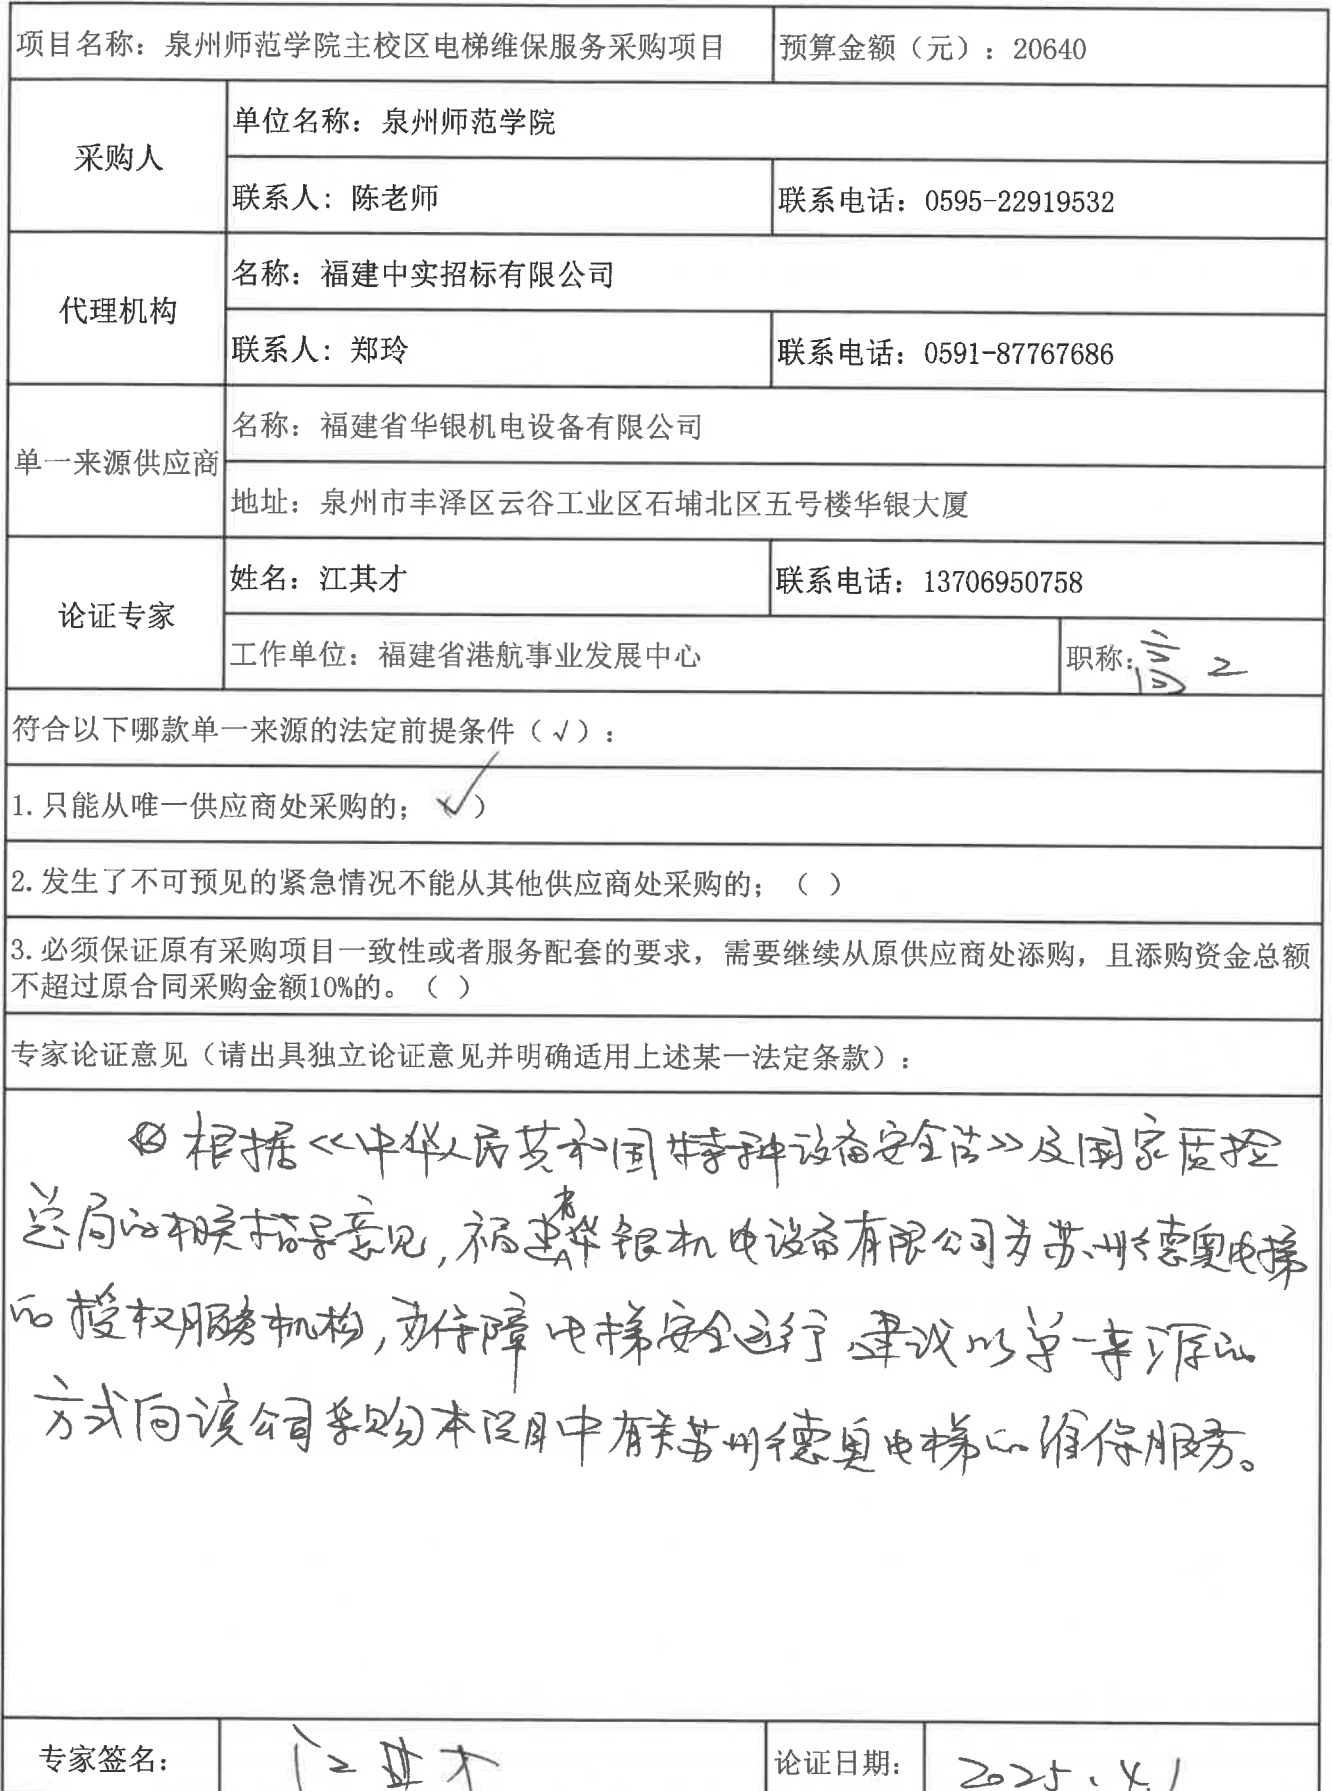 项目名称：泉州师范学院主校区电梯维保服务采购项目 预算金额（元）：20640
采购人
单位名称：泉州师范学院
联系人：陈老师 联系电话：0595-22919532
代理机构
名称：福建中实招标有限公司
联系人：郑玲 联系电话：0591-87767686
单一来源供应商
名称：福建省华银机电设备有限公司
地址：泉州市丰泽区云谷工业区石埔北区五号楼华银大厦
论证专家
姓名：江其才 联系电话：13706950758
工作单位：福建省港航事业发展中心 职称：高工
符合以下哪款单一来源的法定前提条件（√）：
1.只能从唯一供应商处采购的；（√）
2.发生了不可预见的紧急情况不能从其他供应商处采购的；（ ）
3.必须保证原有采购项目一致性或者服务配套的要求，需要继续从原供应商处添购，且添购资金总额
不超过原合同采购金额10%的。（ ）
专家论证意见（请出具独立论证意见并明确适用上述某一法定条款）：
根据《中华人民共和国特种设备安全法》及国家质检
总局的相关指导意见，福建省华银机电设备有限公司为苏州德奥电梯
的授权服务机构，为保障电梯安全运行，建议以单一来源的
方式向该公司采购本项目中有关苏州德奥电梯的维保服务。
专家签名： 江其才 论证日期： 2025.4.1